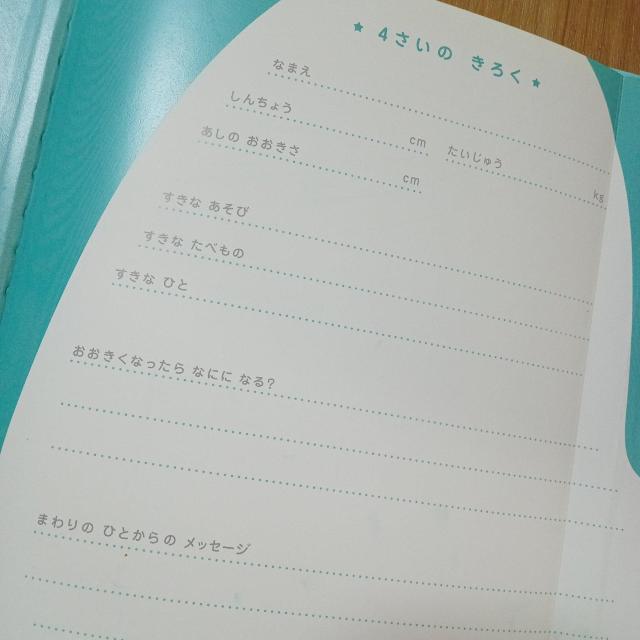 ★ 4さいの きろく ★
なまえ
しんちょう cm たいじゅう kg
あしの おおきさ cm
すきな あそび
すきな たべもの
すきな ひと
おおきくなったら なにに なる?
まわりの ひとからの メッセージ